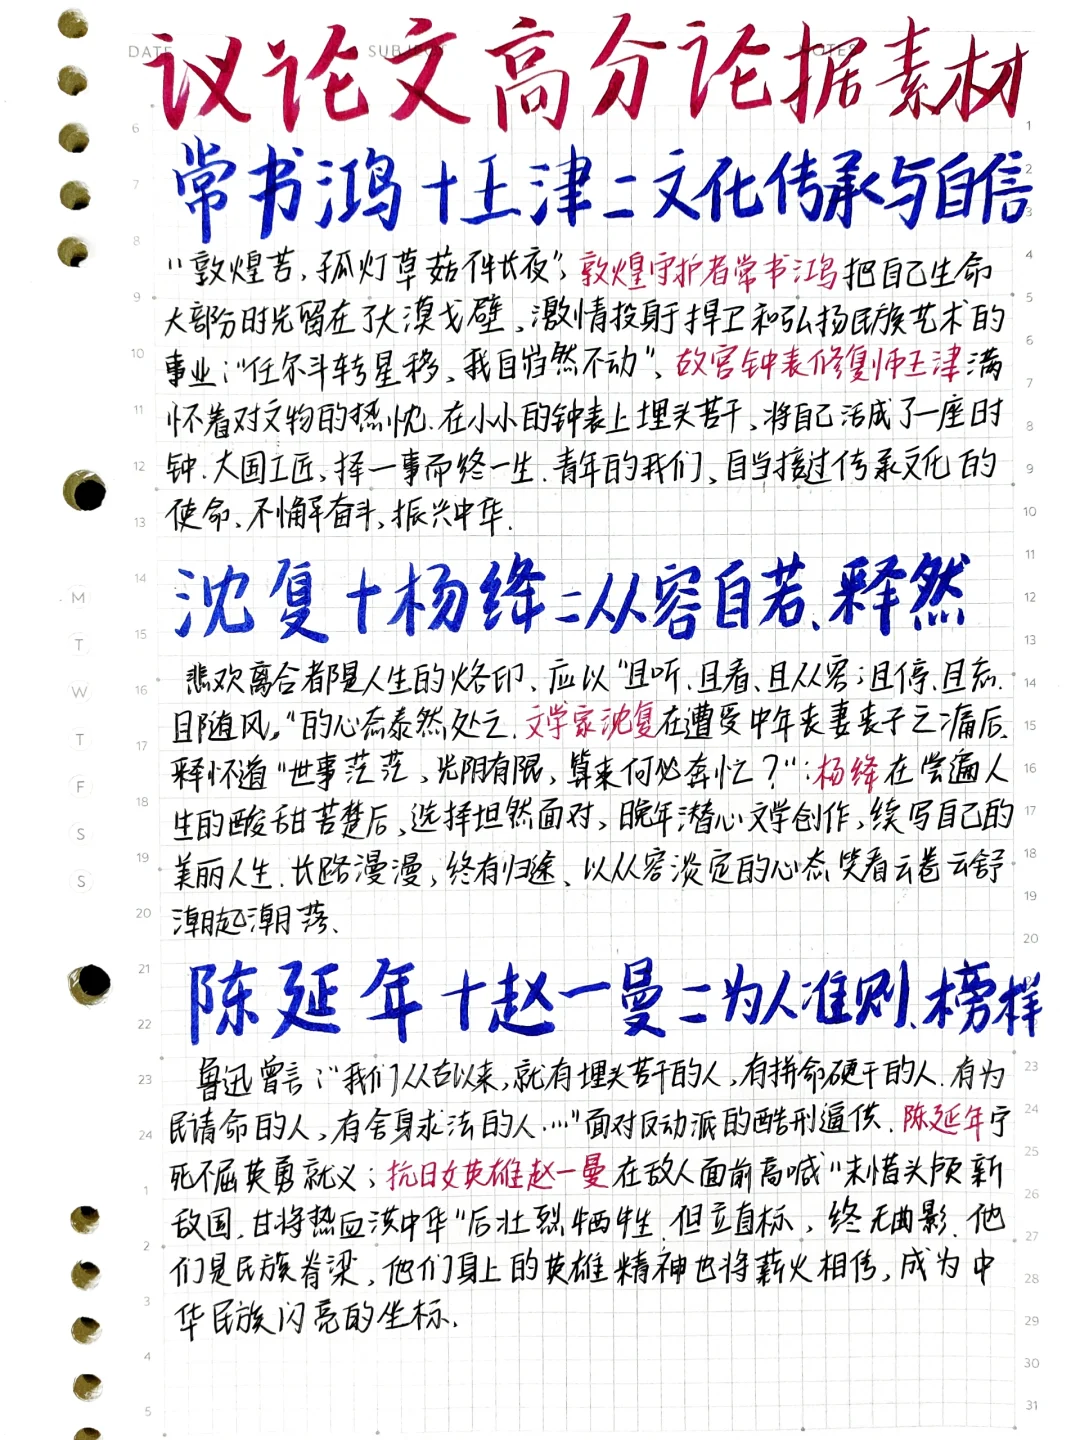 DATE SUBJECT NOTES
议论文高分论据素材
常书鸿+王津=文化传承与自信
"敦煌苦，孤灯草菇伴长夜"，敦煌守护者常书鸿把自己生命
大部分时光留在了大漠戈壁、激情投身于捍卫和弘扬民族艺术的
事业；"任尔斗转星移、我自岿然不动"、故宫钟表修复师王津满
怀着对文物的热忱.在小小的钟表上埋头苦干、将自己活成了一座时
钟.大国工匠、择一事而终一生.青年的我们、自当接过传承文化的
使命、不懈奋斗、振兴中华.
沈复+杨绛=从容自若、释然
悲欢离合都是人生的烙印、应以"且听、且看、且从容；且停、且忘.
且随风。"的心态泰然处之.文学家沈复在遭受中年丧妻丧子之痛后、
释怀道"世事茫茫，光阴有限，算来何必奔忙？"；杨绛在尝遍人
生的酸甜苦楚后、选择坦然面对，晚年潜心文学创作，续写自己的
美丽人生.长路漫漫，终有归途、以从容淡定的心态笑看云卷云舒
潮起潮落、
陈延年+赵一曼=为人准则、榜样
鲁迅曾言："我们从古以来，就有埋头苦干的人，有拼命硬干的人.有为
民请命的人，有舍身求法的人……"面对反动派的酷刑逼供.陈延年宁
死不屈英勇就义；抗日女英雄赵一曼在敌人面前高喊"未惜头颅新
故国，甘将热血沃中华"后壮烈牺牲.但立直标，终无曲影.他
们是民族脊梁，他们身上的英雄精神也将薪火相传，成为中
华民族闪亮的坐标.